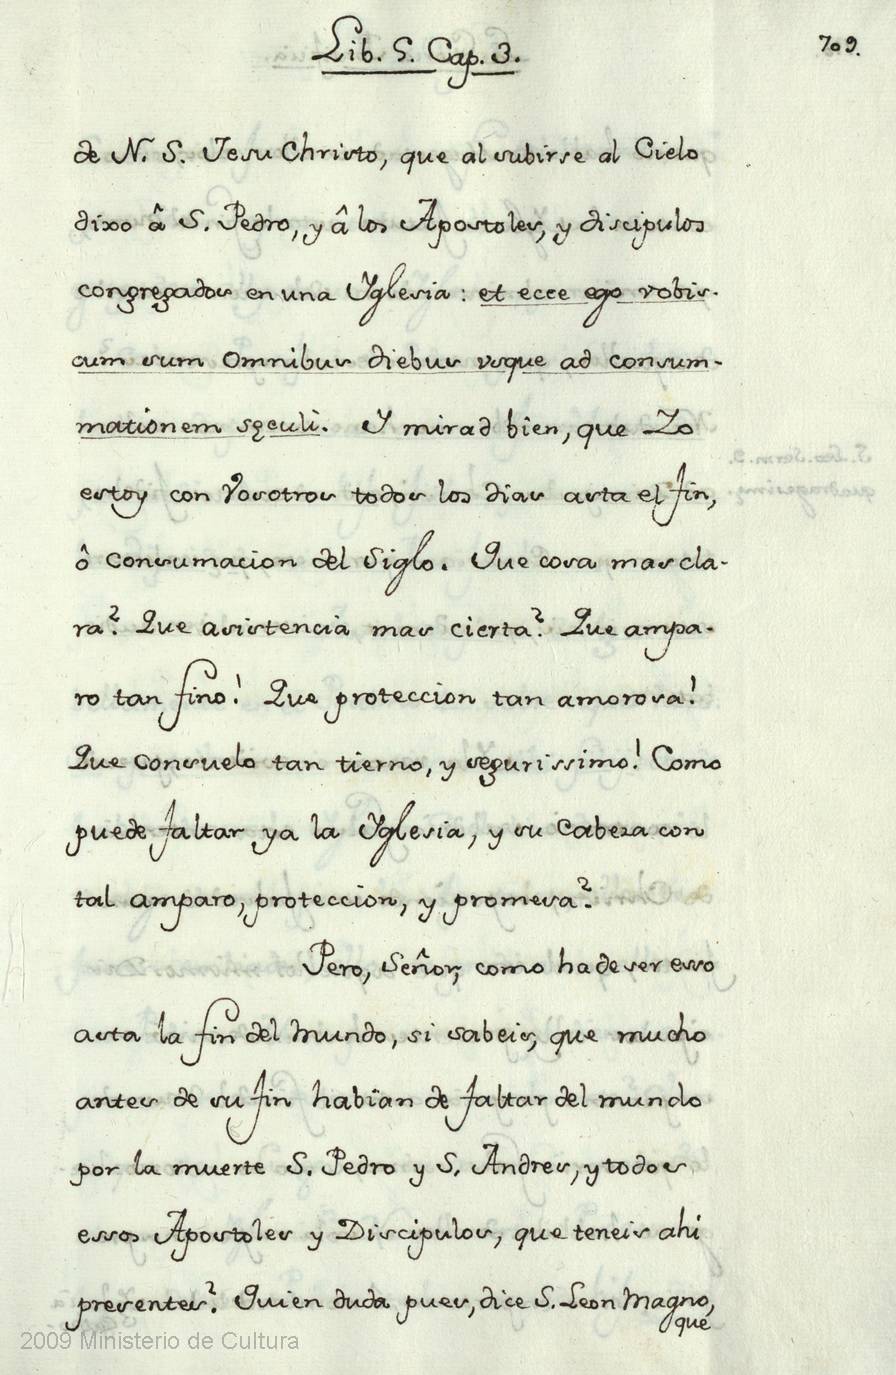 Lib. 5. Cap. 3.
709.
de N. S. Jesu Christo, que al subirse al Cielo
dixo â S. Pedro, y â los Apostoles, y discipulos
congregados en una Yglesia: et ecce ego vobis-
cum sum omnibus diebus vsque ad consum-
mationem sęculi. Y mirad bien, que Yo
estoy con Vosotros todos los dias asta el fin,
ô consumacion del Siglo. Que cosa mas cla-
ra? Que asistencia mas cierta? Que ampa-
ro tan fino! Que proteccion tan amorosa!
Que consuelo tan tierno, y segurissimo! Como
puede faltar ya la Yglesia, y su Cabeza con
tal amparo, proteccion, y promesa?
Pero, Señor, como ha de ser esso
asta la fin del Mundo, si sabeis, que mucho
antes de su fin habian de faltar del mundo
por la muerte S. Pedro y S. Andres, y todos
essos Apostoles y Discipulos, que teneis ahi
presentes? Quien duda pues, dice S. Leon Magno,
que
2009 Ministerio de Cultura